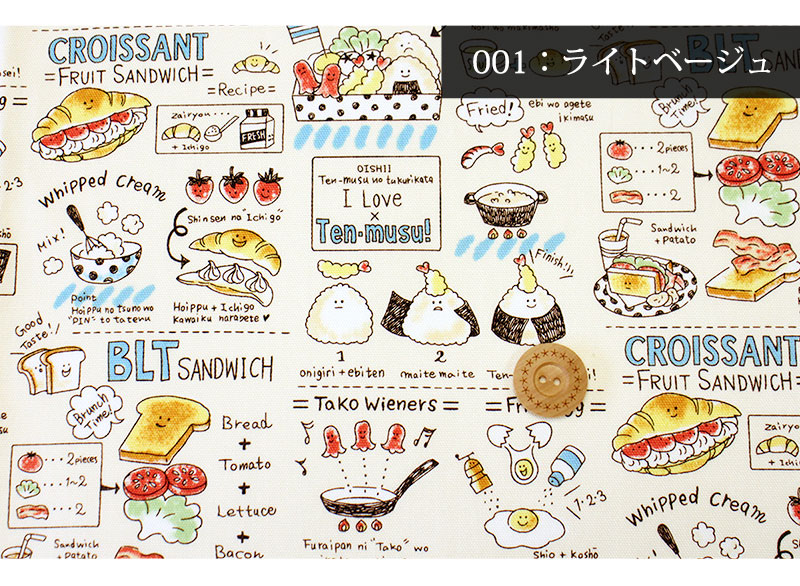 001：ライトベージュ
CROISSANT
=FRUIT SANDWICH=
=Recipe=
zairyou...
+ Ichigo
FRESH
Whipped Cream
Mix!
Shinsen no "Ichigo"
Point
Hoippu no tsuno wo
"PIN" to tateru
Hoippu + Ichigo
Kawaiku narabete♥
OISHII
Ten-musu no tukurikata
I Love
×
Ten-musu!
1
onigiri + ebiten
2
maite maite
Ten-
Fried!
ebi wo agete
ikimasu
Finish!!
BLT SAND
Brunch Time!
...2 pieces
...1~2
...2
Sandwich
+ Patato
Good Taste!
BLT SANDWICH
Brunch Time!
...2 pieces
...1~2
...2
Bread
+
Tomato
+
Lettuce
+
Bacon
Sandwich
+ Patato
=Tako Wieners=
Furaipan ni "Tako" wo
1·2·3
Shio + Koshō
CROISSANT
=FRUIT SANDWICH=
zairyo
+ Ich
Whipped Cream